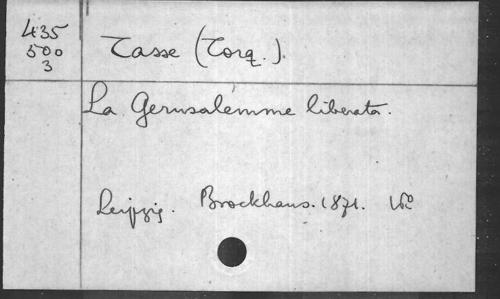 435
500
3
Tasse (Torq.).
La Gerusalemme liberata.
Leipzig. Brockhaus. 1871.